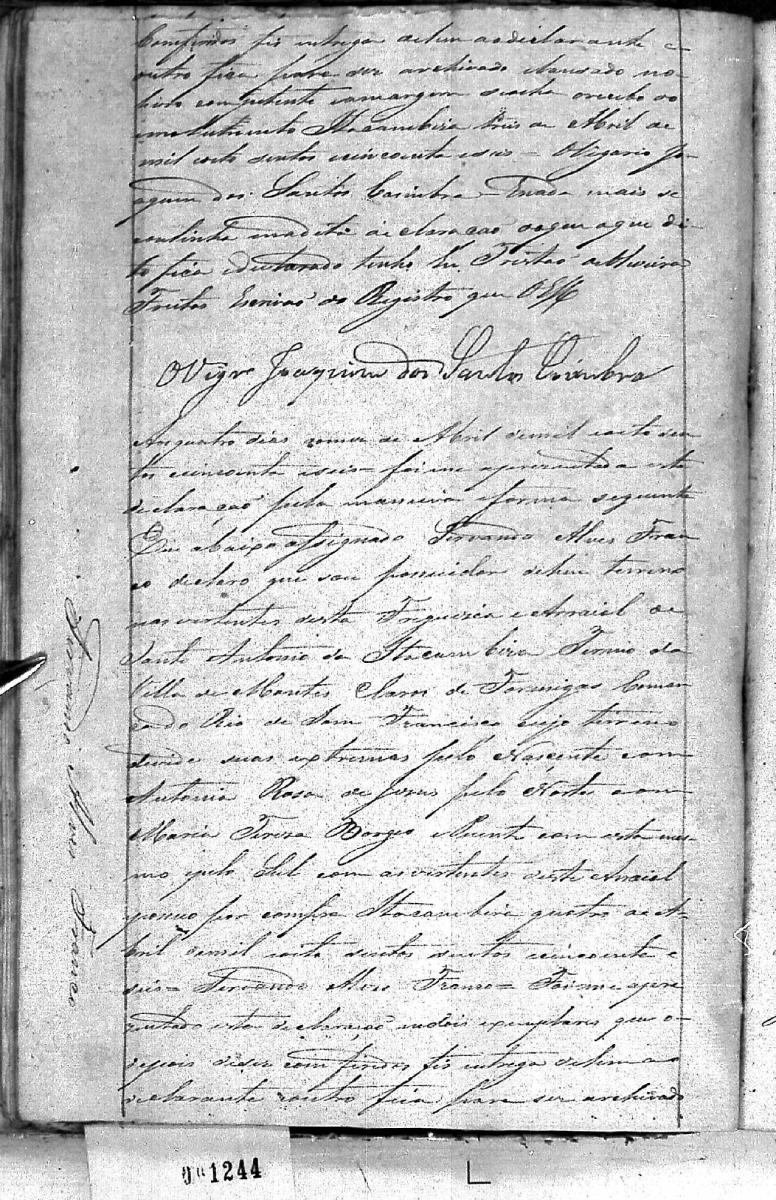 Comfiridos fis entrega de hum ao declarante e
outro fica para ser archivado e lansado no
livro competente e a margem seacha o recibo do
emolumento Itacambira tres de Abril de
mil oito sentos cincoenta e seis = O Vigario Joa
quim dos Santos Coimbra = E nada mais se
continha em a dita declaracaõ da qua aque di
to fica e declarado tenho Eu Tristaõ de Moreira
Freitas Escrivaõ do Registro que O Es
O Vigrº Joaquim dos Santos Coimbra
Aos quatro dias do mes de Abril de mil e oito sen
tos cincoenta e seis = foi me aprezentada esta
declaracaõ pela maneira e forma seguinte
Eu abaixo assignado Fernando Alves Fran
co declaro que sou possuidor de hum terreno
nas vertentes desta Freguezia e Arraial de
Santo Antonio da Itacambira Termo da
Villa de Montes Claros de Formigas Comar
ca do Rio de Sam Francisco cujo terreno
devide suas extremas pelo Nascente com
Antonia Rosa de Jezus pelo Norte com
Maria Tereza Borges e Poente com esta mes
mo e pelo Sul com as vertentes deste Arraial
possuo por compra Itacambira quatro de A-
bril de mil oito sentos sentos cincoenta e
seis = Fernando Alves Franco = Foi me apre
zentado esta declaraçaõ em dois exemplares que o
depois de ser comfiridos fis entrega de hum ao
declarante e outro fica para ser archivado
Fernando Alves Franco
1244